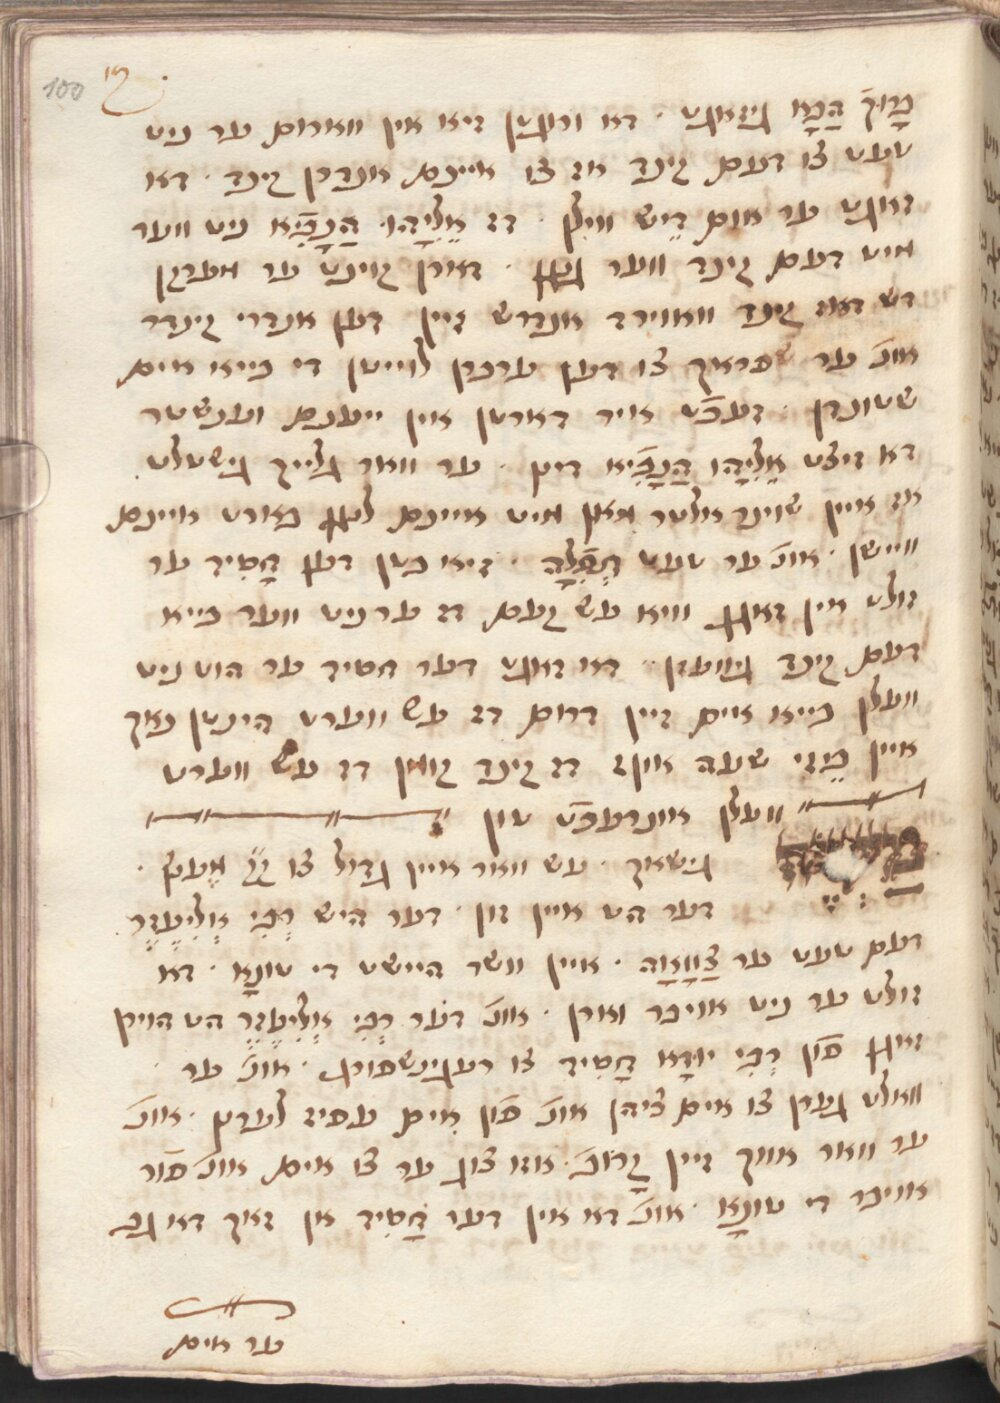 100
בָּרוּךְ הַבָּא גיזאגט . דא ורוגטן זיא אין ווארום ער ניט
טעט צו דעם קינד אז צו איינם אנדרן קינד . דא
זאגט ער אום דיש ווילן . דז אֵלִיָהוּ הַנָבִיא ניט ווער
מיט דעם קינד ווער גנגן . דארן קוינט ער מערקן
דש דאז קינד וואוירד אנדרש זיין דען אנדרי קינדר
אונ' ער שפראך צו דען ערברן לוייטן די בייא אים
שטונדן . זעכט איר דארטן אין יענם וענשטר
דא זיצט אֵלִיָהוּ הַנָבִיא דינן . ער וואר גלייך גישטלט
אז איין שוינר אלטר מאן מיט איינם לנגן בארט איינם
ווייסן . אונ' ער טעט תְּפִלָה . זיא בטן דען חָסִיד ער
זולט אין זאגן וויא עש קעם דז ער ניט ווער בייא
דעם קינד גיוועזן . דא זאגט דער חסיד ער הוט ניט
וועלן בייא אים זיין דרום דז עש ווערט הינטן נאך
איין בֵּיזי שעה אונז דז קינד קומן דז עש ווערט
וועלן אונרעכט טון
גישאך . עש וואר איין גדול צו ק"ק מענץ .
דער הט איין זון . דער היש רְבִי אֱלִיעֶזֶר
דעם טעט ער צַוָואָה . איין וושר היישט די טונָא . דא
זולט ער ניט אויבר וארן . אונ' דער רְבִי אֱלִיעֶזֶר הט הוירן
זאגן פון רְבִי יוּדָא חָסִיד צו רעגינשפורג . אונ' ער
וואלט גערן צו אים ציהן אונ' פון אים עפיז לערנן . אונ'
ער וואר אויך זיין קָרוֹב . אזו צוג ער צו אים אונ' פור
אויבר די טונָא . אונ' דא אין דער חָסִיד אן זאך דא גב
ער אים